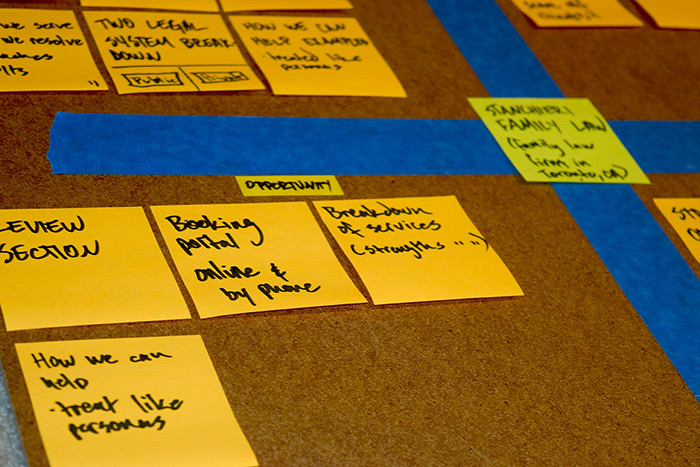 we serve
we resolve
TWO LEGAL
SYSTEM BREAK
DOWN
Public
HOW WE CAN
HELP EXAMPLES
- treated like
personas
STANCHIERI
FAMILY LAW
(family law
firm in
Toronto, ON)
OPPORTUNITY
REVIEW
SECTION
Booking
portal
online &
by phone
Breakdown
of services
(strengths " ")
How we can
help
- treat like
personas